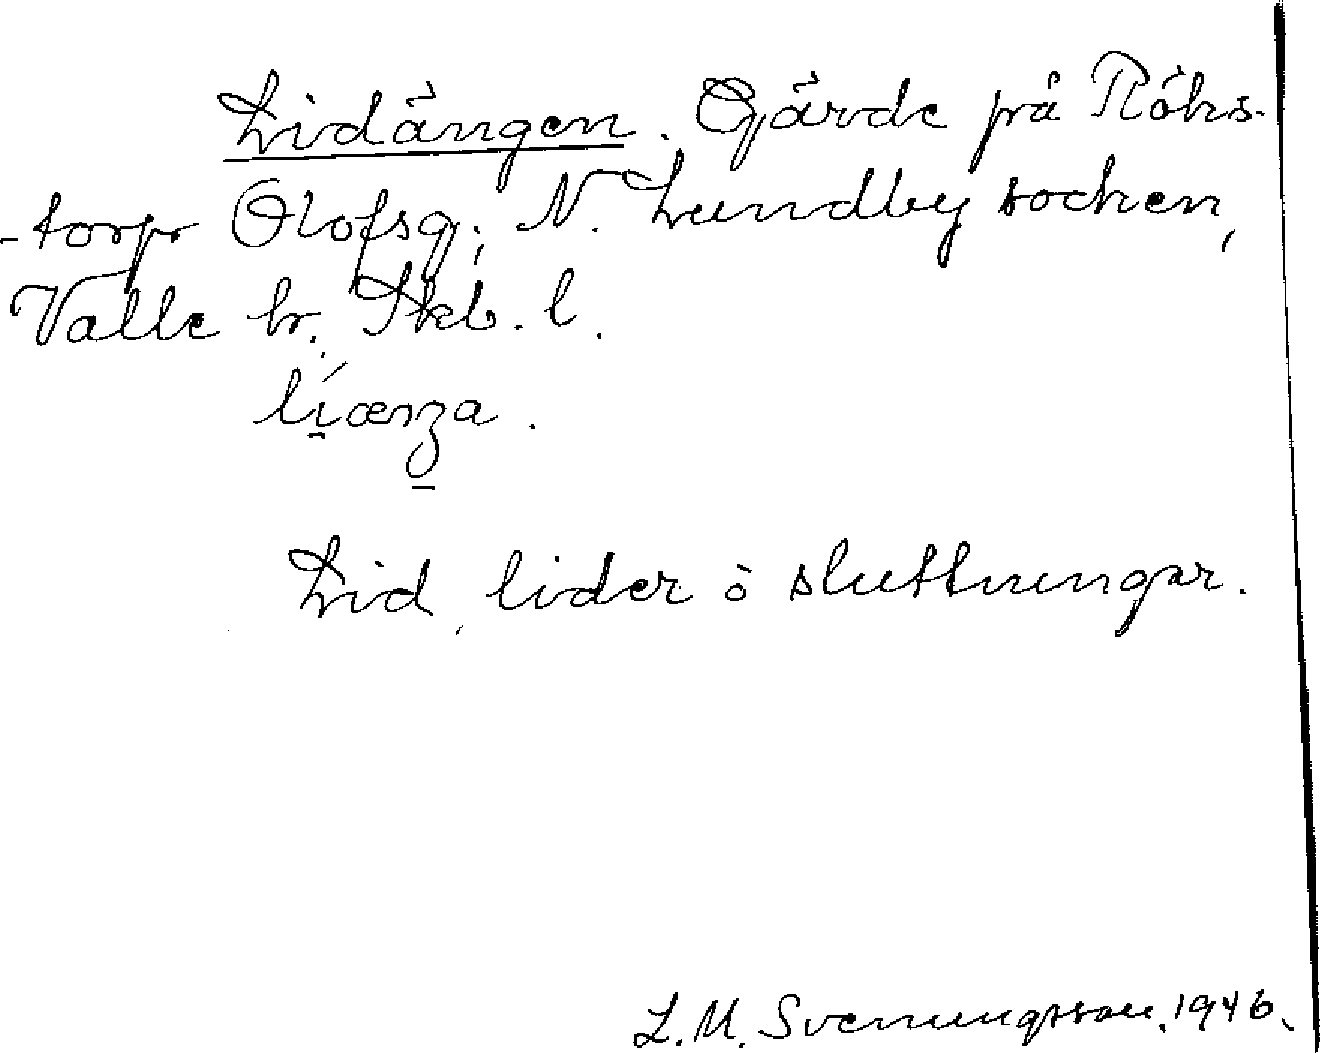 Lidängen. Gärde på Röks-
-torp Olofsg; N. Lundby socken,
Valle hr. Skb. l.
líænza.
Lid, lider ò sluttningar.
L. M. Svenungsson. 1946.